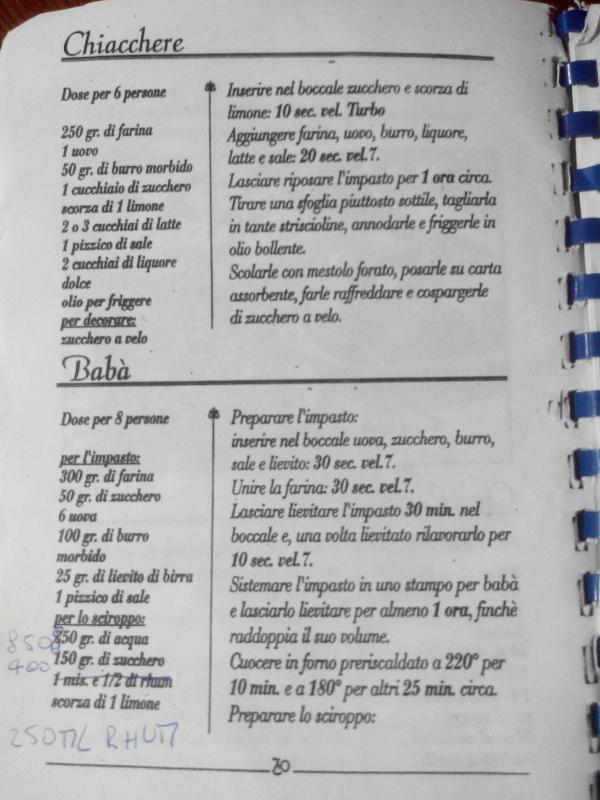 Chiacchere
Dose per 6 persone
250 gr. di farina
1 uovo
50 gr. di burro morbido
1 cucchiaio di zucchero
scorza di 1 limone
2 o 3 cucchiai di latte
1 pizzico di sale
2 cucchiai di liquore
dolce
olio per friggere
per decorare:
zucchero a velo
Inserire nel boccale zucchero e scorza di
limone: 10 sec. vel. Turbo
Aggiungere farina, uovo, burro, liquore,
latte e sale: 20 sec. vel.7.
Lasciare riposare l'impasto per 1 ora circa.
Tirare una sfoglia piuttosto sottile, tagliarla
in tante striscioline, annodarle e friggerle in
olio bollente.
Scolarle con mestolo forato, posarle su carta
assorbente, farle raffreddare e cospargerle
di zucchero a velo.
Babà
Dose per 8 persone
per l'impasto:
300 gr. di farina
50 gr. di zucchero
6 uova
100 gr. di burro
morbido
25 gr. di lievito di birra
1 pizzico di sale
per lo sciroppo:
850 250 gr. di acqua
400 150 gr. di zucchero
1 mis. e 1/2 di rhum
scorza di 1 limone
250ML RHUM
Preparare l'impasto:
inserire nel boccale uova, zucchero, burro,
sale e lievito: 30 sec. vel.7.
Unire la farina: 30 sec. vel.7.
Lasciare lievitare l'impasto 30 min. nel
boccale e, una volta lievitato rilavorarlo per
10 sec. vel.7.
Sistemare l'impasto in uno stampo per babà
e lasciarlo lievitare per almeno 1 ora, finchè
raddoppia il suo volume.
Cuocere in forno preriscaldato a 220° per
10 min. e a 180° per altri 25 min. circa.
Preparare lo sciroppo: